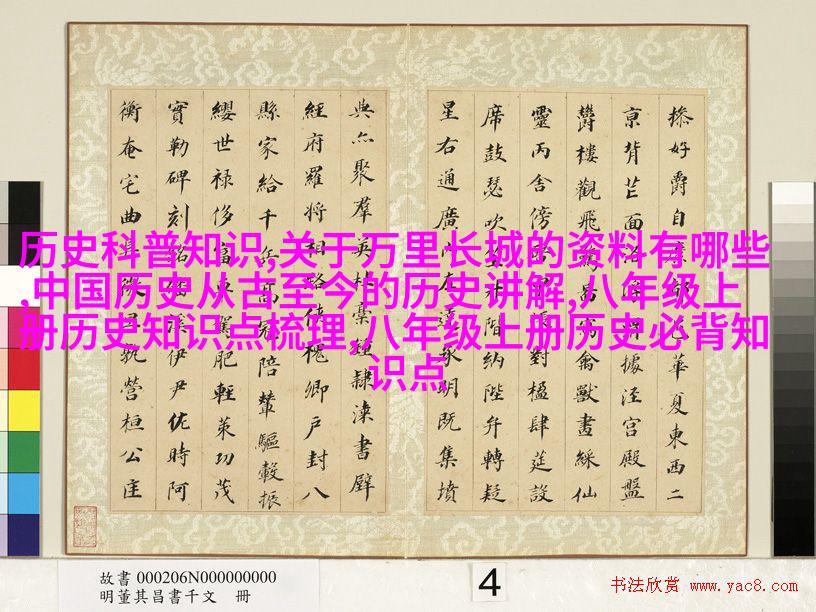 历史科普知识,关于万里长城的资料有哪些
,中国历史从古至今的历史讲解,八年级上
册历史知识点梳理,八年级上册历史必背知
识点
操好爵自縻都邑華夏東西二
京背芒面洛浮渭據涇宮殿盤
欝樓觀飛驚啚寫禽獸畫綵仙
靈丙舍傍啓甲帳對楹肆筵設
席鼓瑟吹笙升階納陛弁轉疑
星右通廣内左達承明既集墳
典亦聚羣英杜稾鍾隸漆書壁
經府羅將相路俠槐卿户封八
縣家給千兵高冠陪輦驅轂振
纓世禄侈富車駕肥輕策功茂
實勒碑刻銘磻溪伊尹佐時阿
衡奄宅曲阜微旦孰營桓公匡
故書 000206N000000000
明董其昌書千文 冊
4
书法欣赏 www.yac8.com